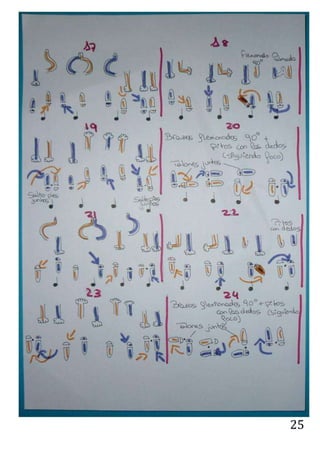 17
18
Flexionado
90°
19
20
Brazos flexionados 90° +
pitos con los dedos
(siguiendo foco)
Talones juntos
Salto pies
juntos
Salto pies
juntos
21
22
Pitos
con dedos
23
24
Brazos flexionados 90° + pitos
con los dedos (siguiendo
foco)
Talones juntos
25